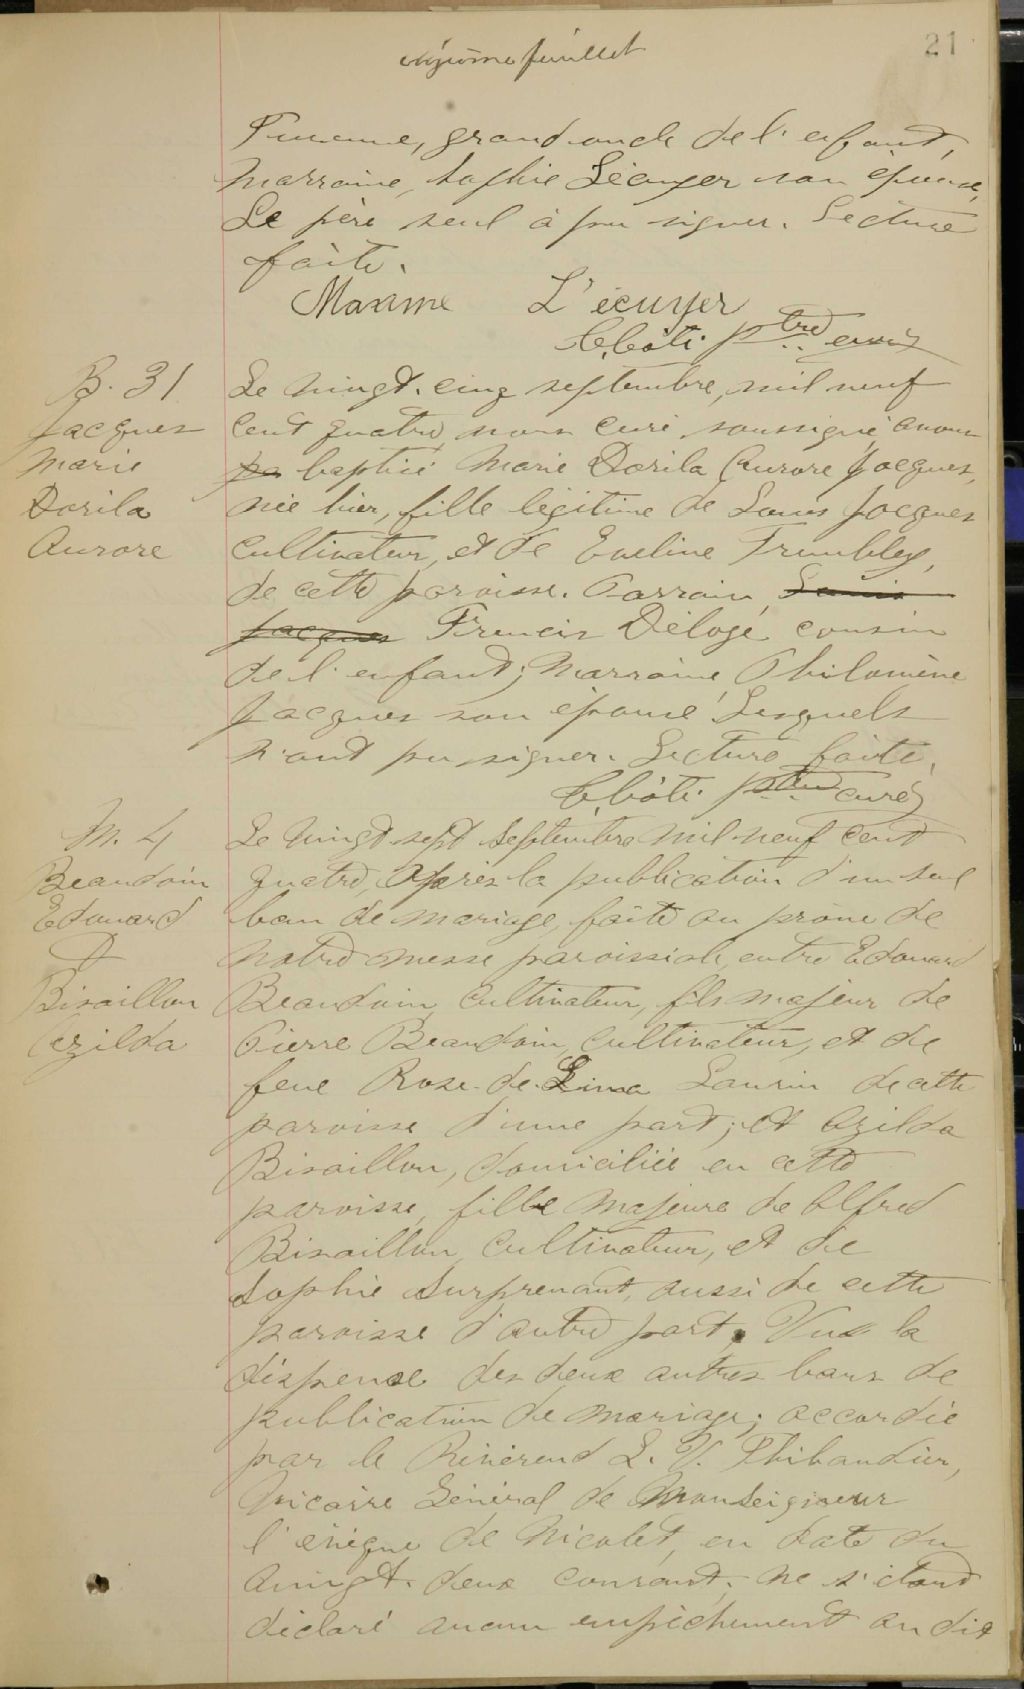 21
vingtième feuillet
grand oncle de l'enfant,
Marraine, Sophie Lécuyer son épouse,
Le père seul à pu signer. Lecture
faite.
Maxime L'écuyer
ptre curé
B. 31
Jacques
Marie
Dorila
Aurore
Le vingt-cinq septembre, mil neuf
cent quatre, nous curé soussigné avons
baptisé Marie Dorila Aurore Jacques,
née hier, fille légitime de Louis Jacques
cultivateur, et de Eveline Trembley,
de cette paroisse. Parrain, Louis
Jacques Francis Déloge cousin
de l'enfant; Marraine, Philomène
Jacques son épouse Lesquels
n'ont pu signer. Lecture faite.
ptre curé
M. 4
Beaudoin
Edouard
&
Bisaillon
Azilda
Le vingt-sept Septembre mil neuf cent
quatre, Après la publication d'un seul
ban de mariage, faite au prône de
notre messe paroissiale entre Edouard
Beaudoin, cultivateur, fils majeur de
Pierre Beaudoin, cultivateur, et de
feue Rose-de-Lima Laurin de cette
paroisse d'une part; et Azilda
Bisaillon, domiciliée en cette
paroisse, fille majeure de Alfred
Bisaillon, cultivateur, et de
Sophie Surprenant, aussi de cette
paroisse d'autre part, Vue la
dispense des deux autres bans de
publication de mariage; accordée
par le Révérend L. V. Thibaudier,
Vicaire Général de Monseigneur
l'évêque de Nicolet, en date du
vingt-deux courant; ne s'étant
déclaré aucun empêchement au dit